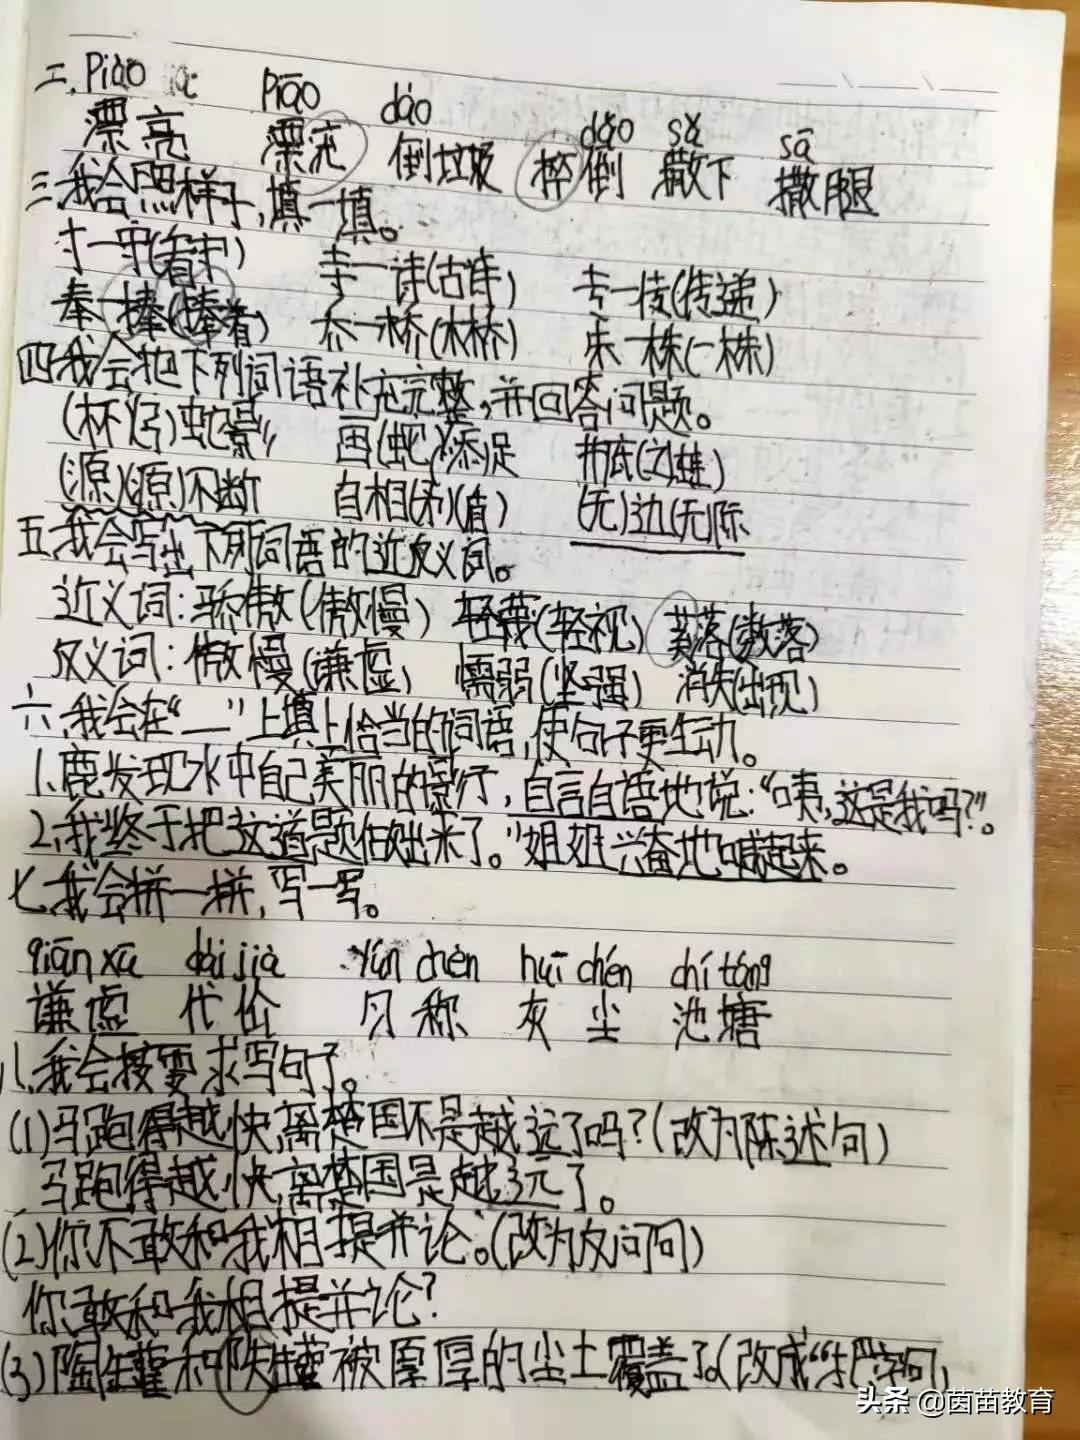 二、piào piāo dào dǎo sǎ sā
漂亮 漂流 倒垃圾 摔倒 撒下 撒腿
三、我会照样子,填一填。
寸一守(看守) 寺一诗(古诗) 专一传(传递)
奉一捧(捧着) 乔一桥(木桥) 朱一株(一株)
四、我会把下列词语补充完整,并回答问题。
(杯)(弓)蛇影 画(蛇)添足 井底(之)(蛙)
(源)(源)不断 自相(矛)(盾) (无)边(无)际
五、我会写出下列词语的近反义词。
近义词:骄傲(傲慢) 轻蔑(轻视) 落(散落)
反义词:傲慢(谦虚) 懦弱(坚强) 消失(出现)
六、我会在“__”上填上恰当的词语,使句子更生动。
1、鹿发现水中自己美丽的影子,自言自语地说:“咦,这是我吗?”。
2、我终于把这道题做出来了。”姐姐兴奋地喊起来。
七、我会拼一拼,写一写。
qiān xū dài jià yún chèn huī chén chí táng
谦虚 代价 匀称 灰尘 池塘
八、我会按要求写句子。
(1)马跑得越快,离楚国不是越远了吗?(改为陈述句)
马跑得越快,离楚国是越远了。
(2)你不敢和我相提并论。(改为反问句)
你敢和我相提并论?
(3)陶罐和铁罐被厚厚的尘土覆盖了(改成“把”字句)
头条 @茵苗教育